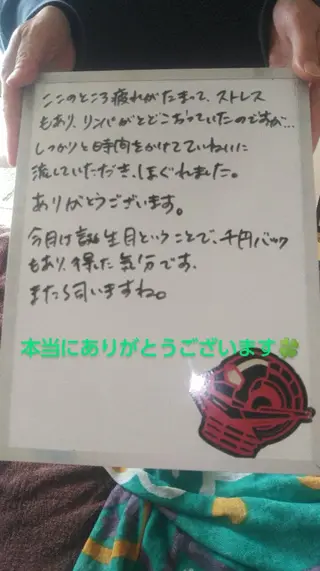 ここのところ疲れがたまって、ストレス
もあり、リンパがとどこおっていたのですが…
しっかりと時間をかけてていねいに
流していただき、ほぐれました。
ありがとうございます。
今月は誕生月ということで、千円バック
もあり、得した気分です。
また伺いますね。
本当にありがとうございます🍀